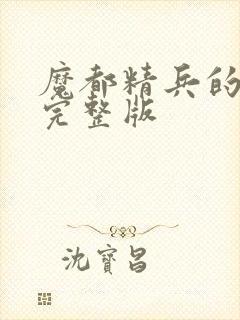 魔都精兵的
完整版
沈寶昌